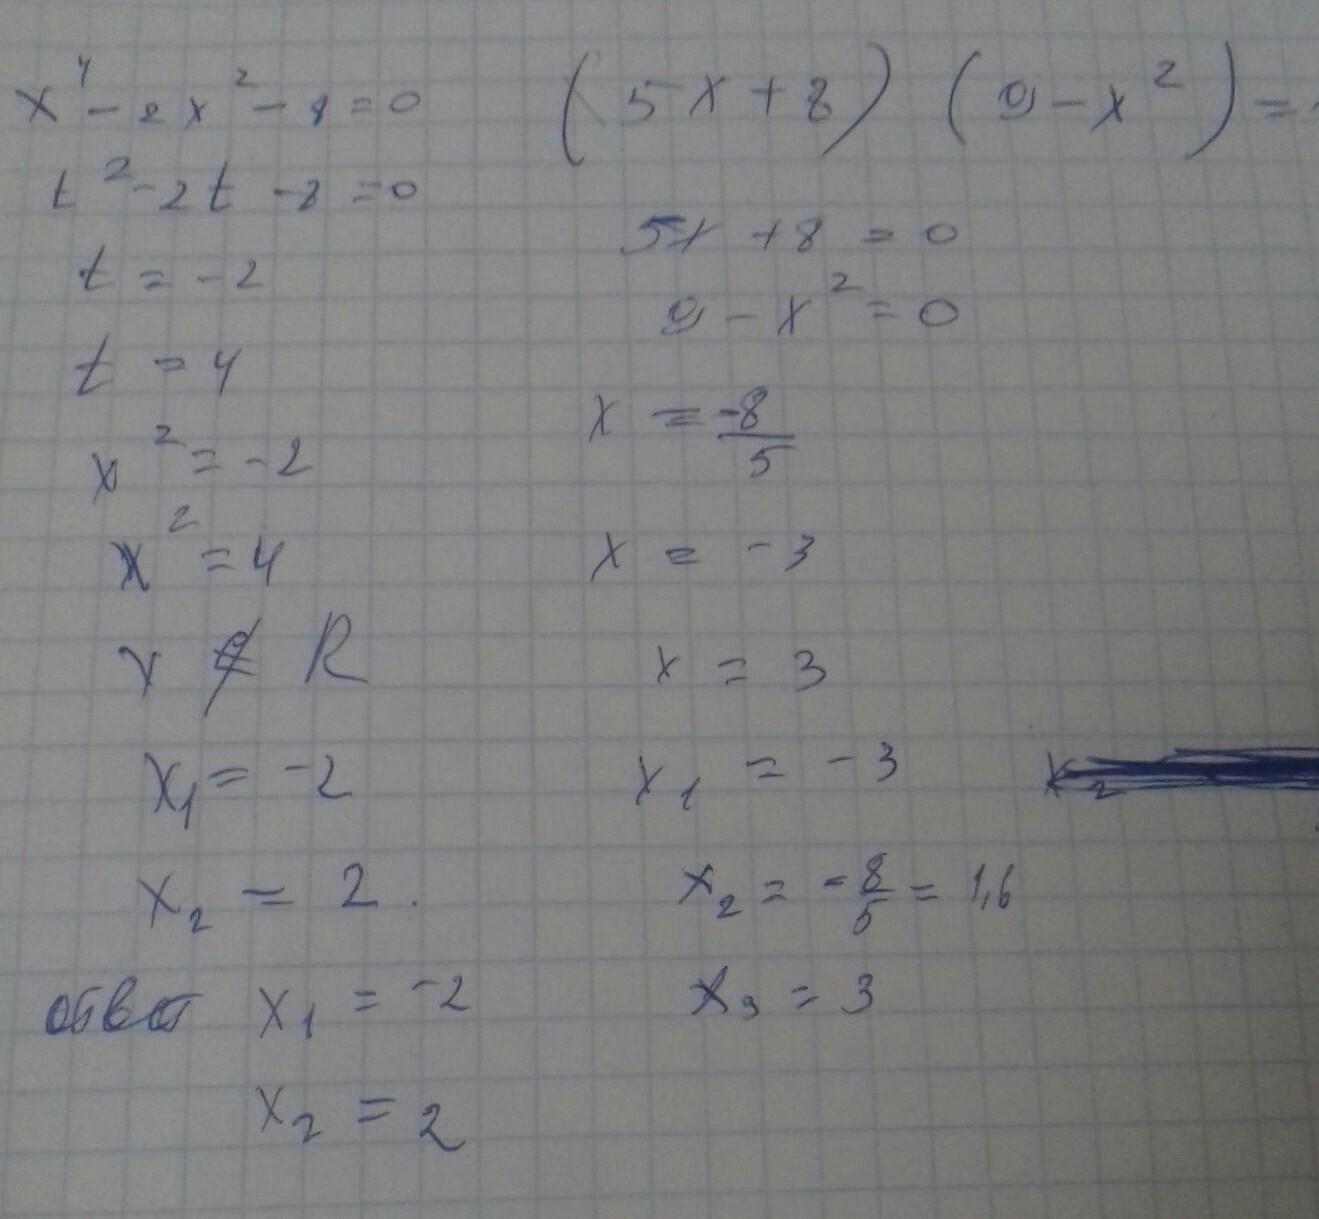 x⁴ - 2x² - 8 = 0
t² - 2t - 8 = 0
t = -2
t = 4
x² = -2
x² = 4
x ∉ R
x₁ = -2
x₂ = 2.
ответ x₁ = -2
x₂ = 2
(5x + 8) (9 - x²) =
5x + 8 = 0
9 - x² = 0
x = -8/5
x = -3
x = 3
x₁ = -3
x₂ = -8/5 = 1,6
x₃ = 3